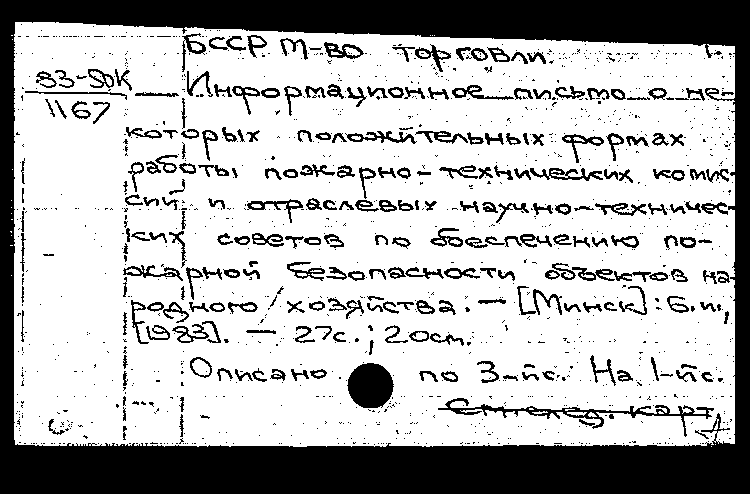 БССР М-ВО ТОРГОВЛИ. 1.
83-5DK
1167
Информационное письмо о не-
которых положительных формах
работы пожарно-технических комис-
сий и отраслевых научно-техничес-
ких советов по обеспечению по-
жарной безопасности объектов на-
родного хозяйства. — [Минск]: Б.и.,
[1983]. — 27с.; 20см.
Описано по 3-й с. На 1-й с.
карт.